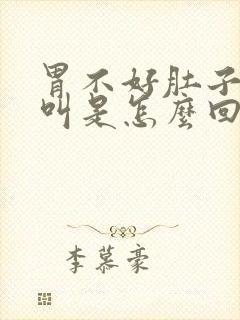 胃不好肚子
叫是怎麼回
李慕豪